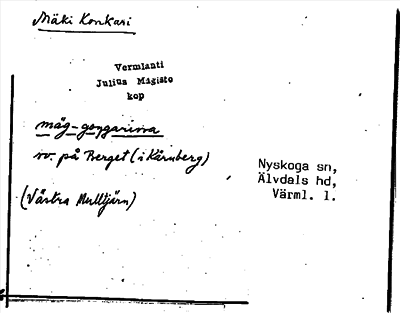 Mäki Konkari
Vermlanti
Julius Mägiste
kop
mäg-goŋgarissa
nv. på Berget (i Kårnberg)
(Västra Mulltjärn)
Nyskoga sn,
Älvdals hd,
Värml. l.